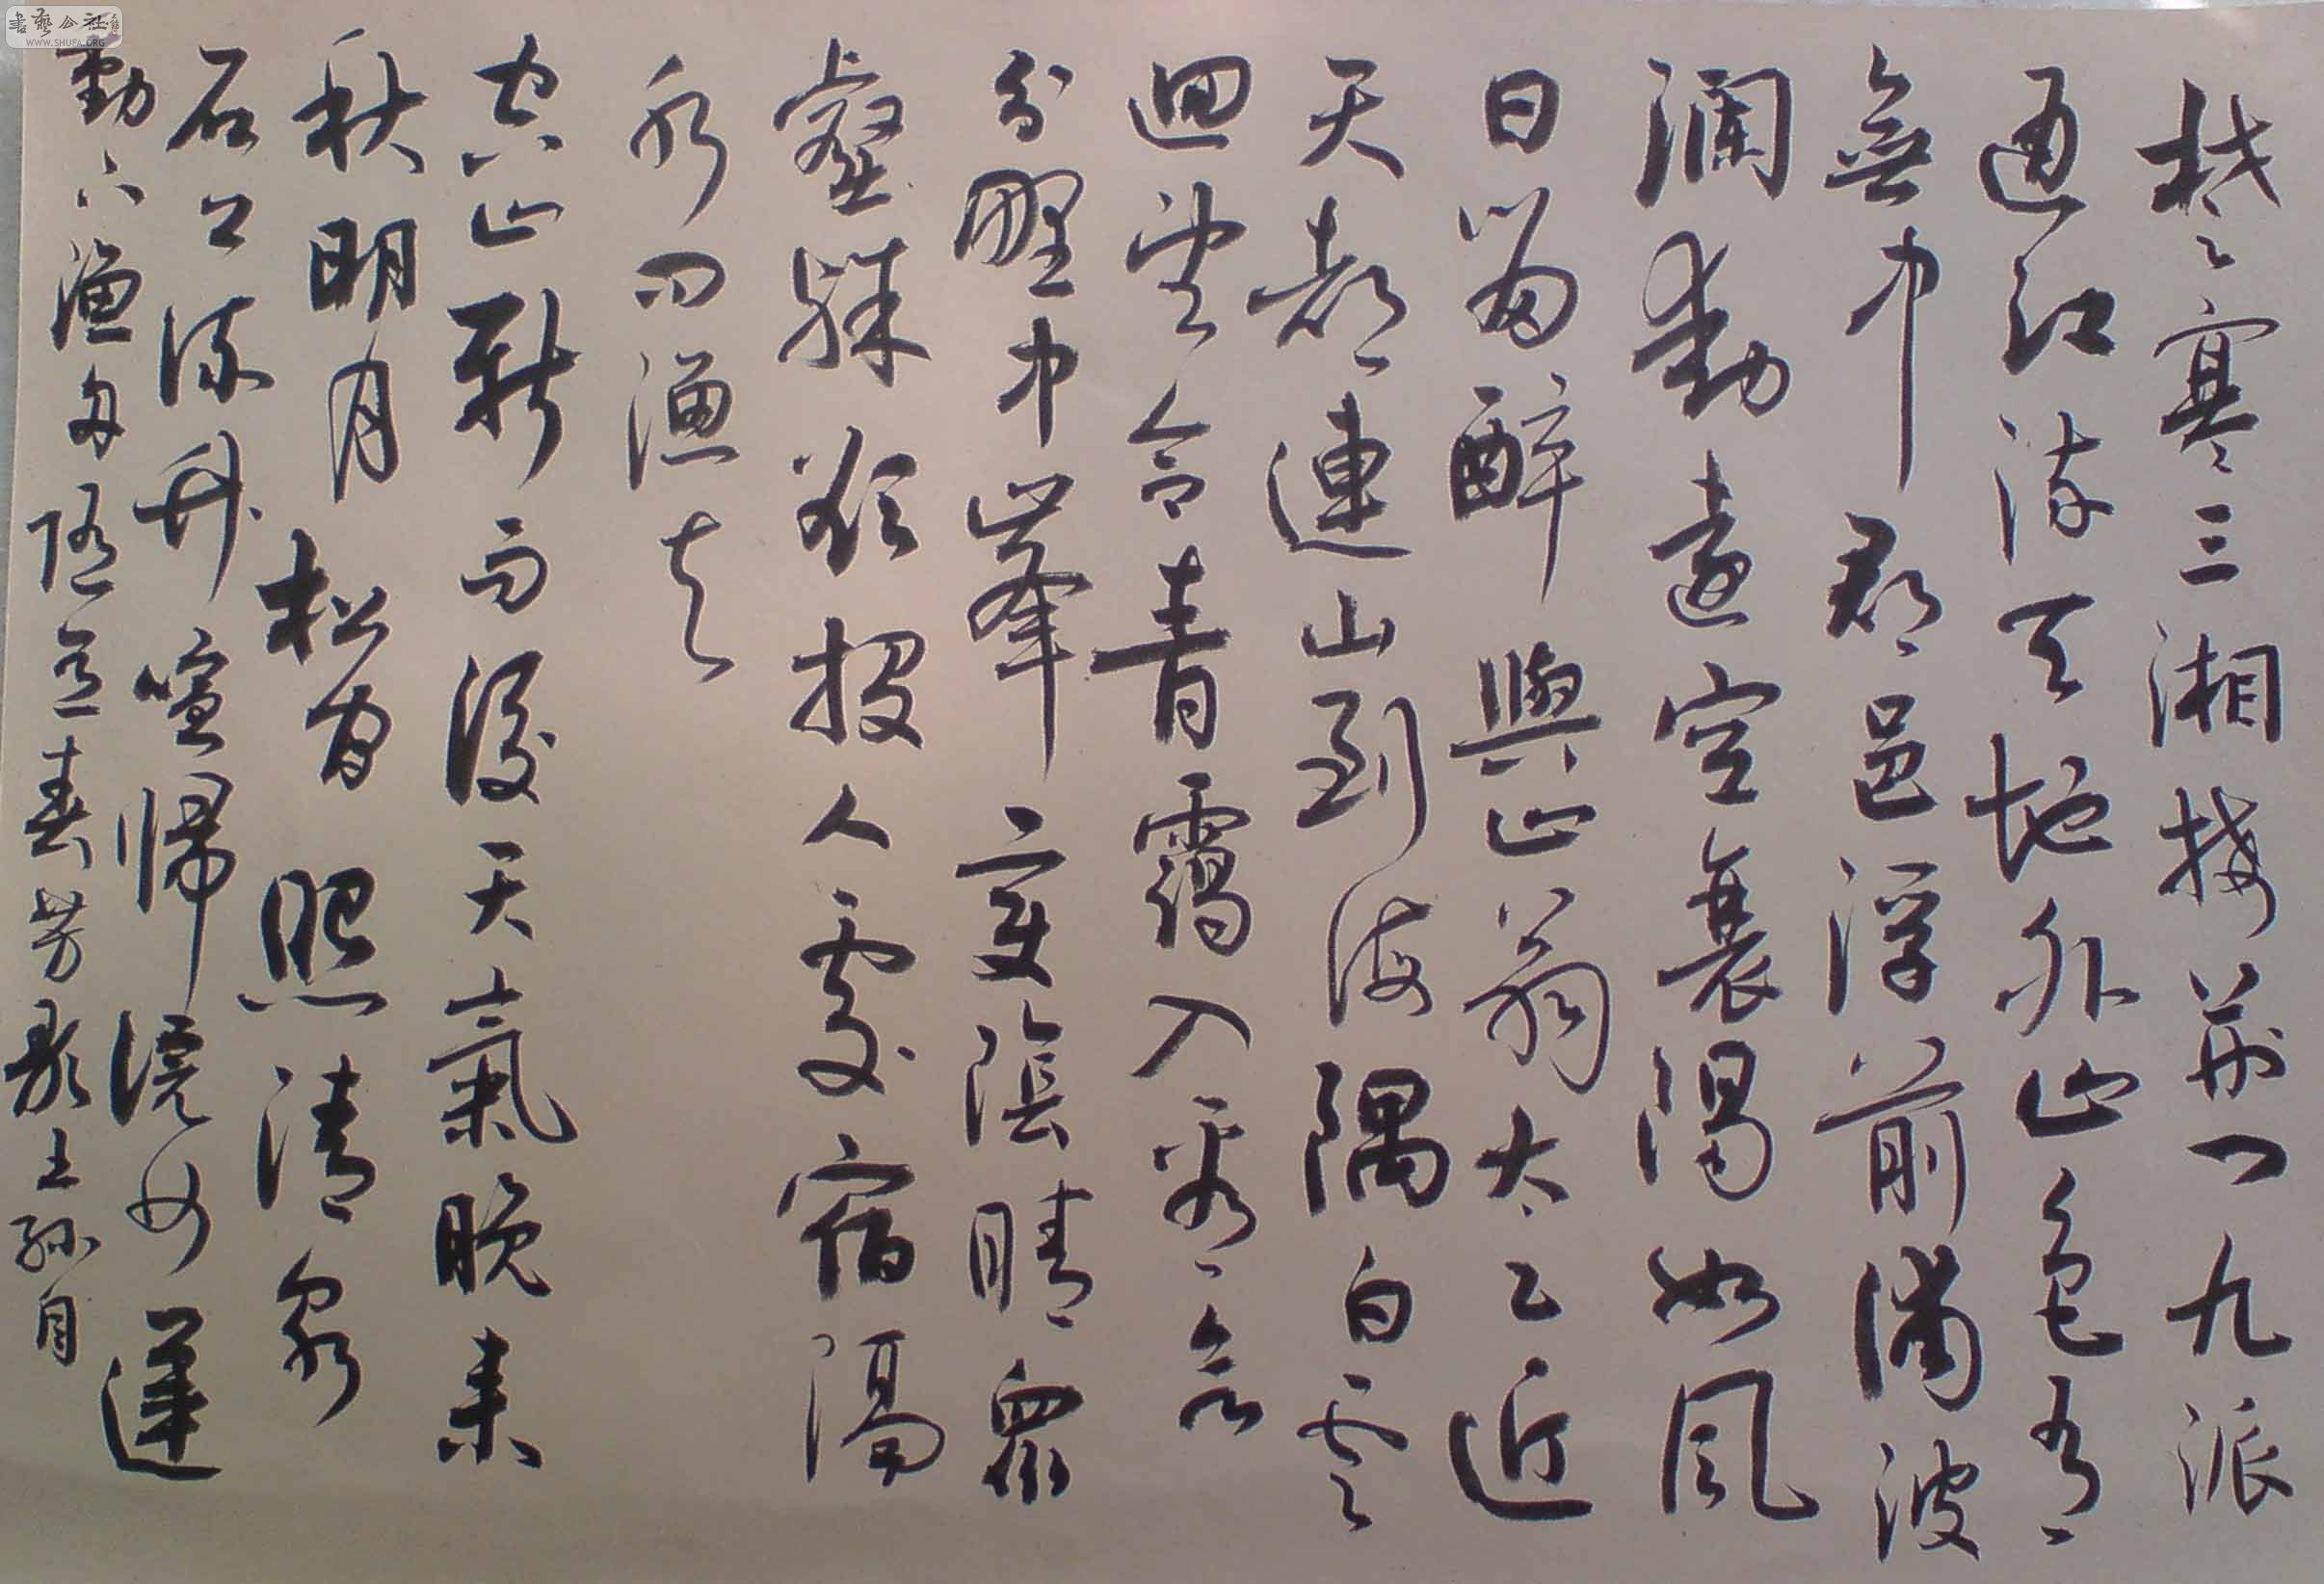 楚塞三湘接荊門九派
通江流天地外山色有
無中郡邑浮前浦波
瀾動遠空襄陽好風
日留醉與山翁太乙近
天都連山到海隅白雲
迴望合青靄入看無
分野中峯變陰晴衆
壑殊欲投人處宿隔
水問漁夫
空山新雨後天氣晚來
秋明月松間照清泉
石上流竹喧歸浣女蓮
動下漁舟隨意春芳歇王孫自
書藝公社
WWW.SHUFA.ORG